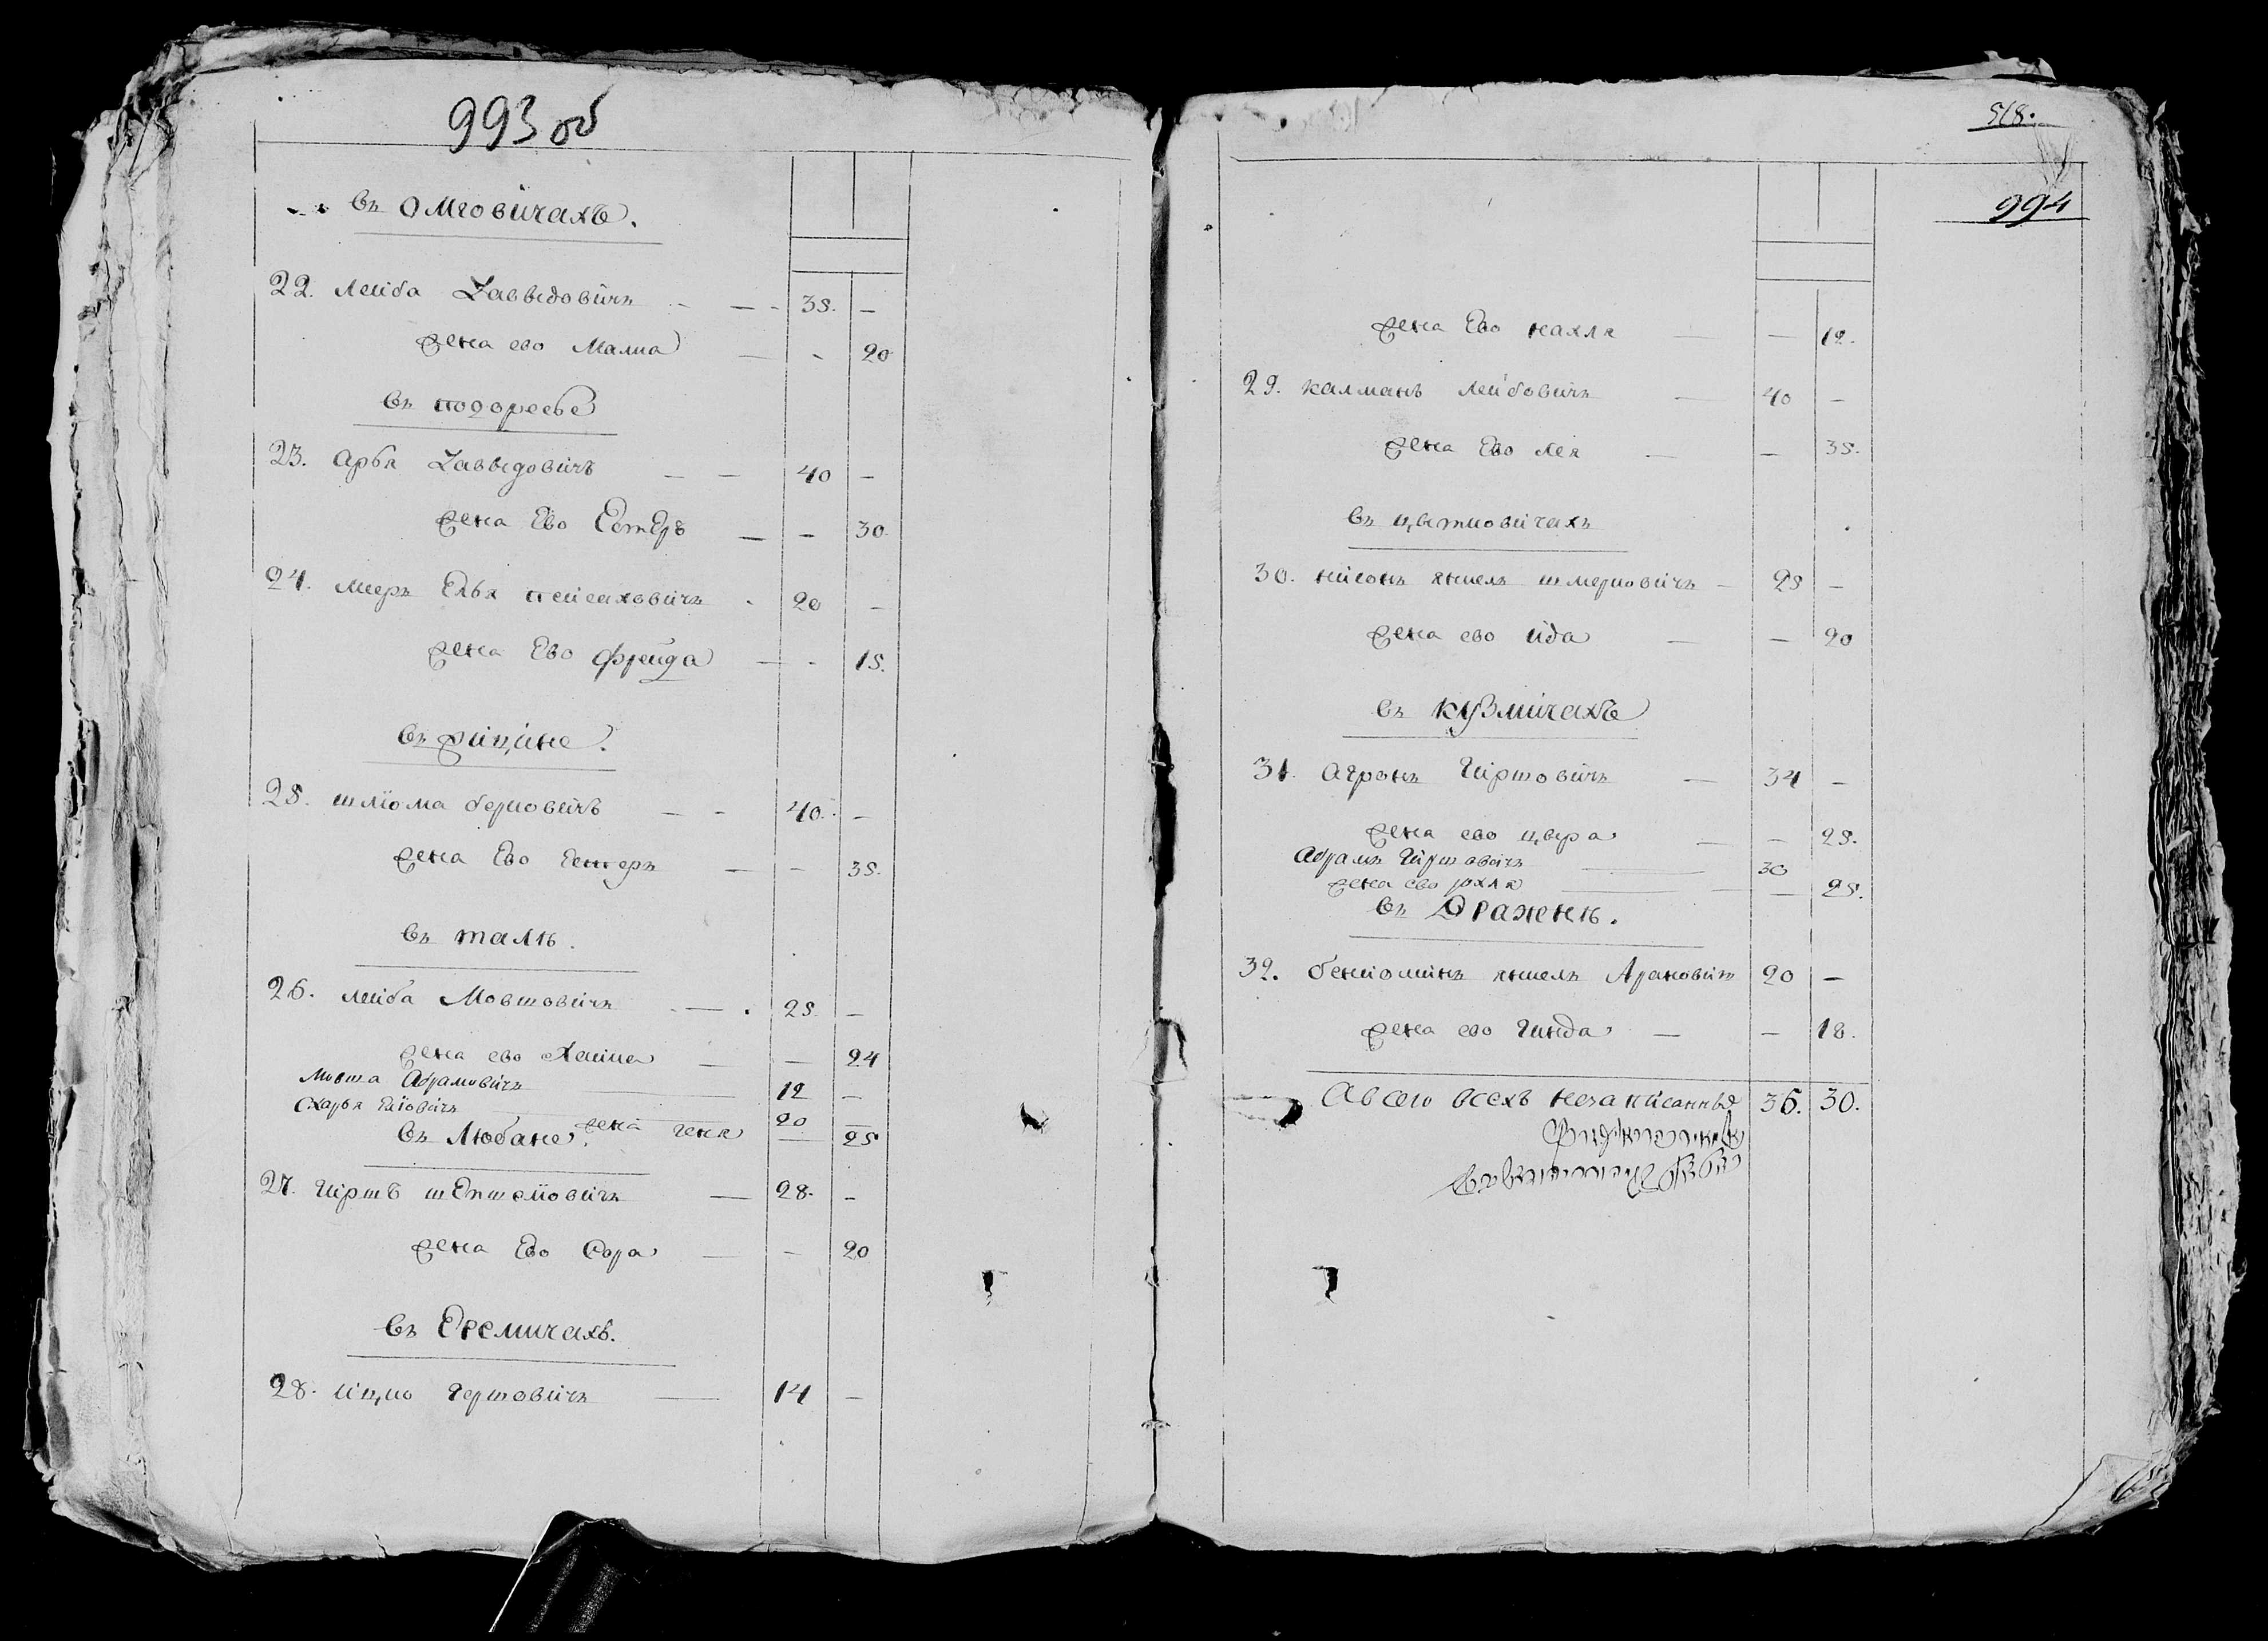 993 об
въ Омговичахъ.
22. Лейба Давыдовичъ — — 35. —
жена ево Малка — - 20
въ погоресье
23. Арья Давыдовичъ — — 40 —
жена Ево Естеръ — — 30
24. Мееръ Елья Пейсаховичъ . 20 —
жена Ево Фрейда — - 15.
въ рипине.
25. шліома берковичъ — - 40. —
жена Ево Естеръ — — 35.
въ талѣ.
26. лейба Мовшовичъ — . 25. —
жена ево Хайка — — 24
Мовша Абрамовичъ 12 —
20 —
въ Любане. жена геня — 25
27. Гиршъ — 28. —
жена Ево Сора — — 20
въ Еремичахъ.
28. ицко гершовичъ — 14 —
518.
994
жена Ево нахля — — 12.
29. калманъ лейбовичъ — 40 —
жена Ево лея — — 35.
въ цветковичахъ
30. нисонъ янкель шмерковичъ — 25 —
жена ево ида — — 20
въ кузмичахъ
31. Агронъ Гиршовичъ — 34 —
жена ево цвера — — 25.
Абрамъ Гиршовичъ 30
жена ево рохля — — 25.
въ Дражнѣ.
32. бениоминъ янкель Ароновичъ 20 —
жена ево гинда — — 18.
А всего всехъ незаписанныхъ 36. 30.